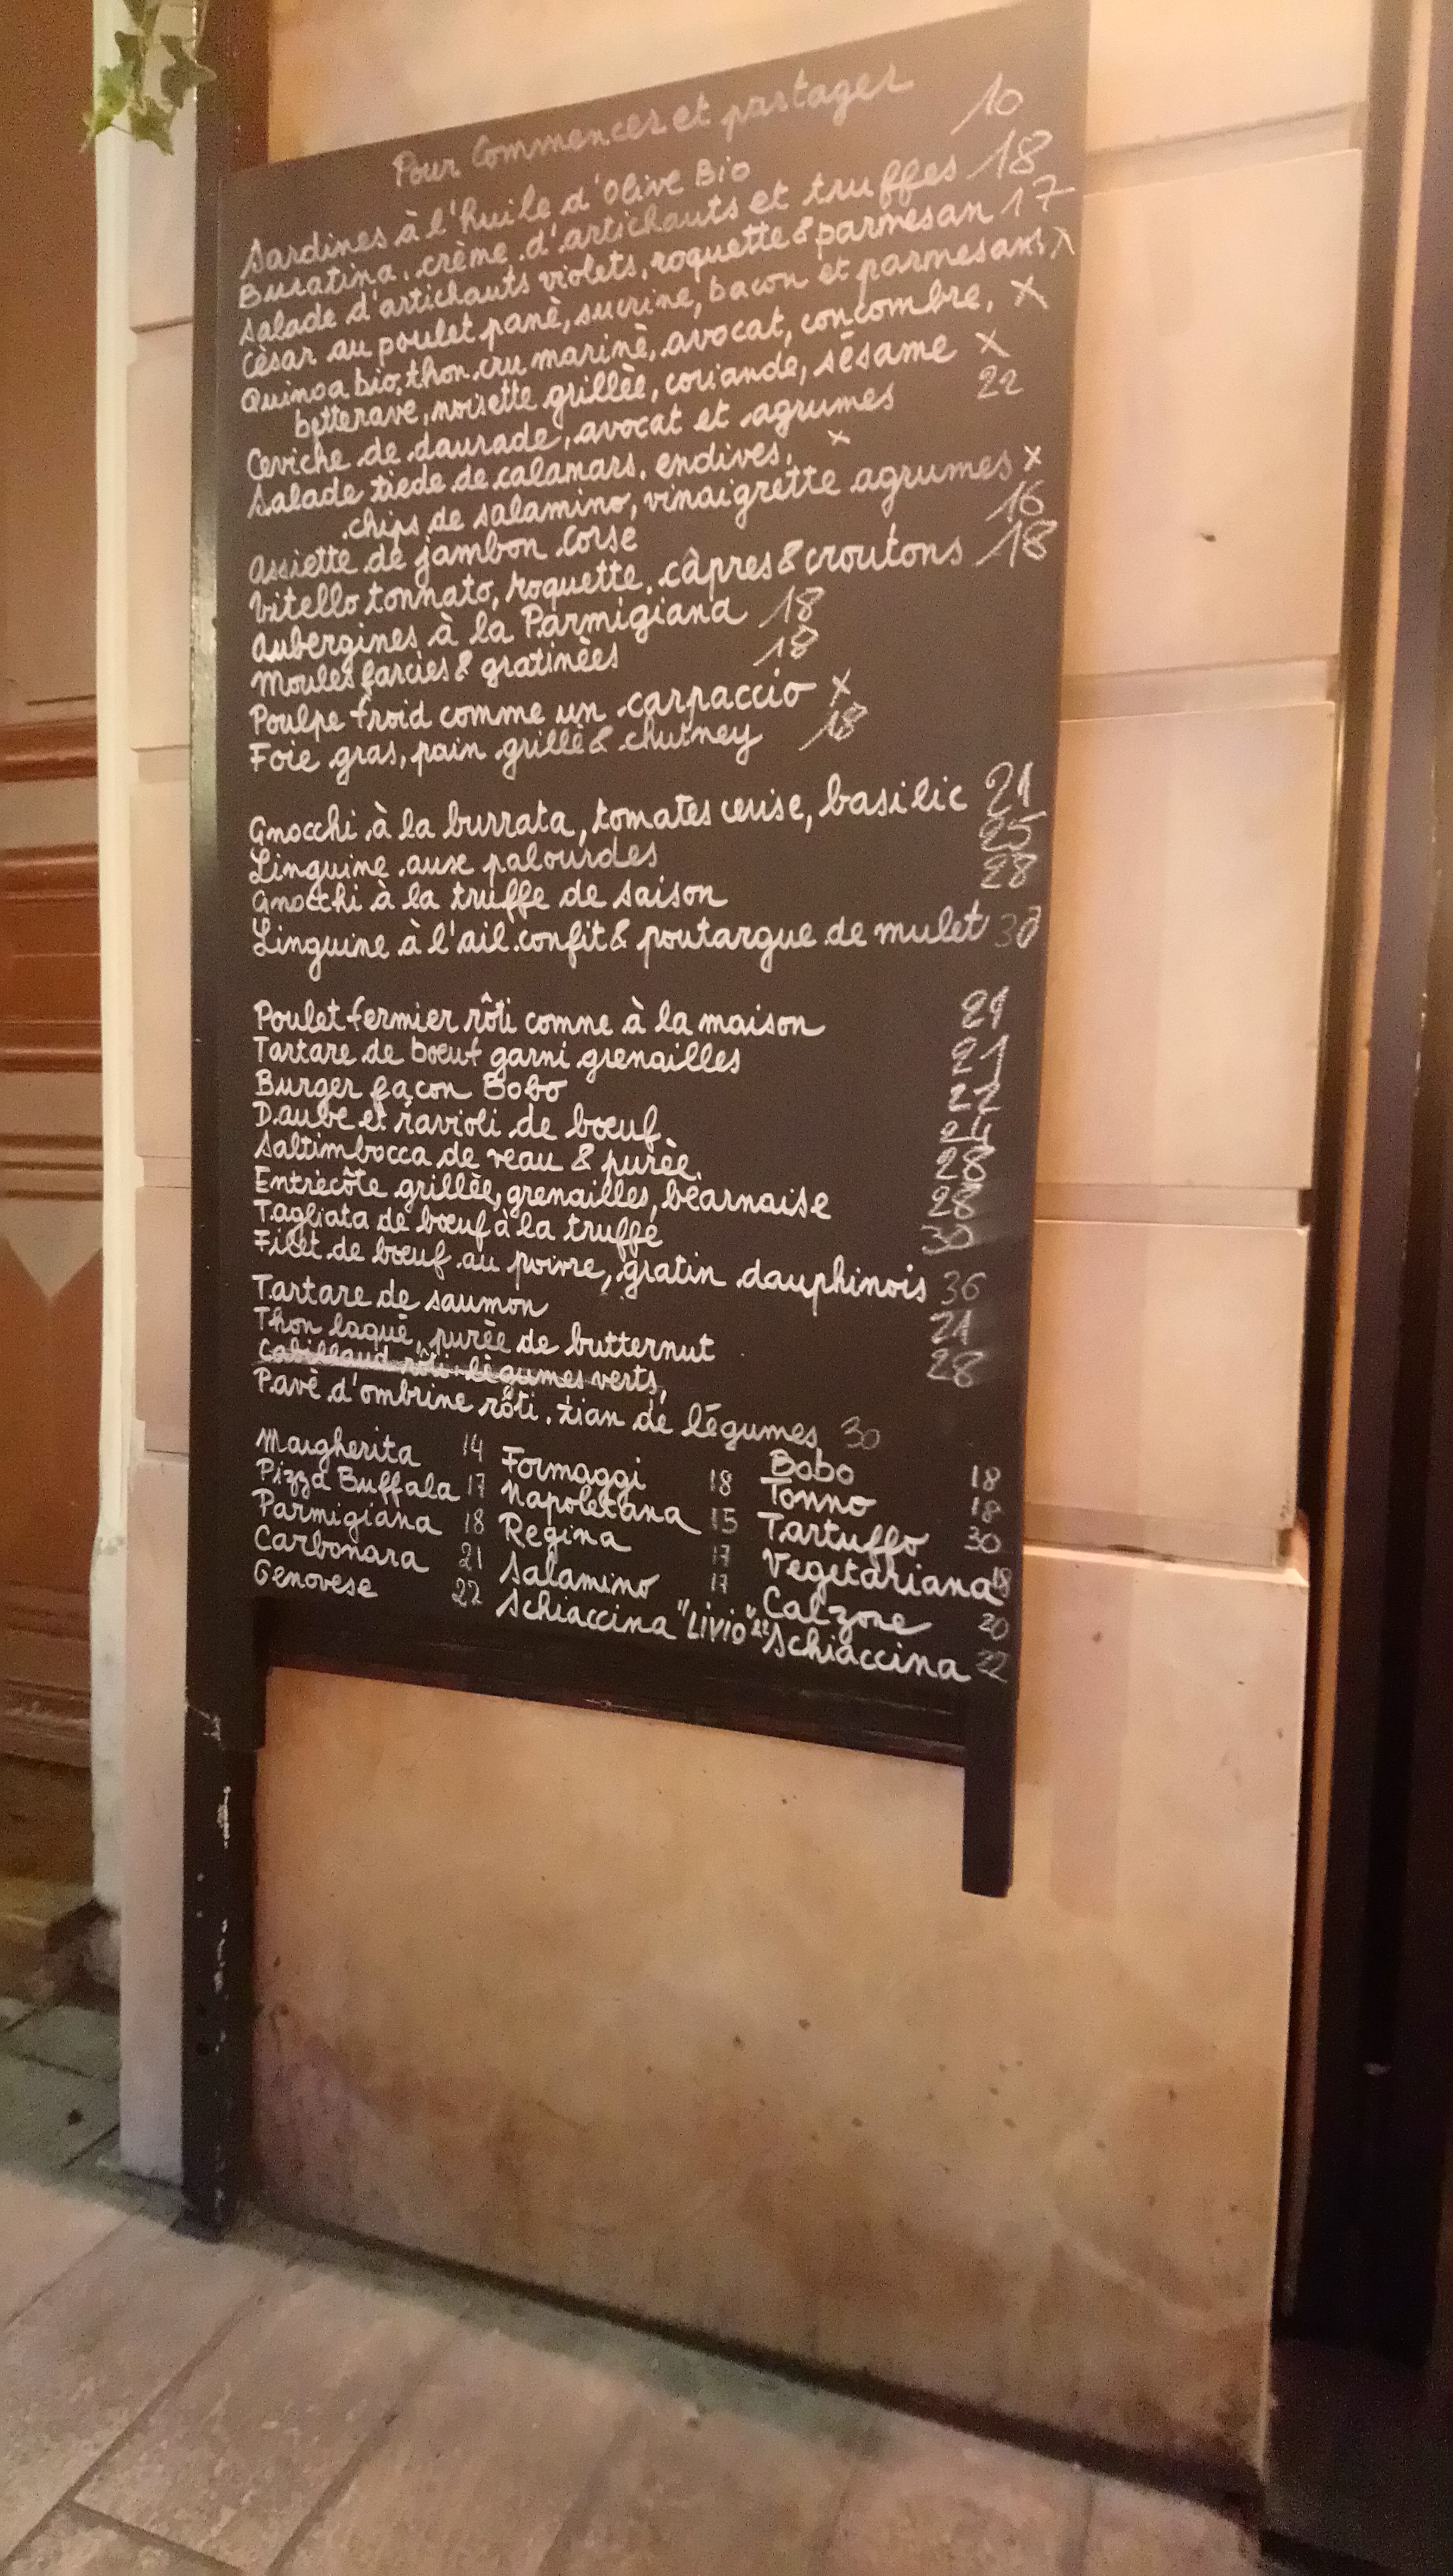 Pour Commencer et partager
Sardines à l'huile d'Olive Bio 10
Buratina, crème d'artichauts et truffes 18
Salade d'artichauts violets, roquette & parmesan 17
Cèsar au poulet panè, sucrine, bacon et parmesans X
Quinoa bio, thon cru marinè, avocat, concombre, X
betterave, noisette grillèe, coriande, sésame X
Ceviche de daurade, avocat et agrumes 22
Salade tiede de calamars, endives, x
chips de salamino, vinaigrette agrumes x
Assiette de jambon Corse 16
Vitello tonnato, roquette, câpres & croutons 18
Aubergines à la Parmigiana 18
Moules farcies & gratinèes 18
Poulpe froid comme un carpaccio x
Foie gras, pain grillè & chutney 18
Gnocchi à la burrata, tomates cerise, basilic 21
Linguine aux palourdes 25
Gnocchi à la truffe de saison 28
Linguine à l'ail confit & poutargue de mulet
Poulet fermier rôti comme à la maison
Tartare de bœuf garni grenailles 21
Burger façon Bobo
Daube et ravioli de bœuf 24
Saltimbocca de veau & purèe. 28
Entrecôte grillèe, grenailles, bèarnaise 28
Tagliata de bœuf à la truffe
Filet de bœuf au poivre, gratin dauphinois 36
Tartare de saumon 21
Thon laquè, purèe de butternut 28
Cabillaud rôti lègumes verts,
Pavè d'ombrine rôti, tian de légumes 30
Margherita 14 Formaggi 18 Bobo 18
Pizza Buffala 17 Napoletana 15 Tonno 18
Parmigiana 18 Regina 17 Tartuffo 30
Carbonara 21 Salamino 17 Vegetariana 18
Genovese 22 Schiaccina "Livio" 22 Calzone 20
Schiaccina 22